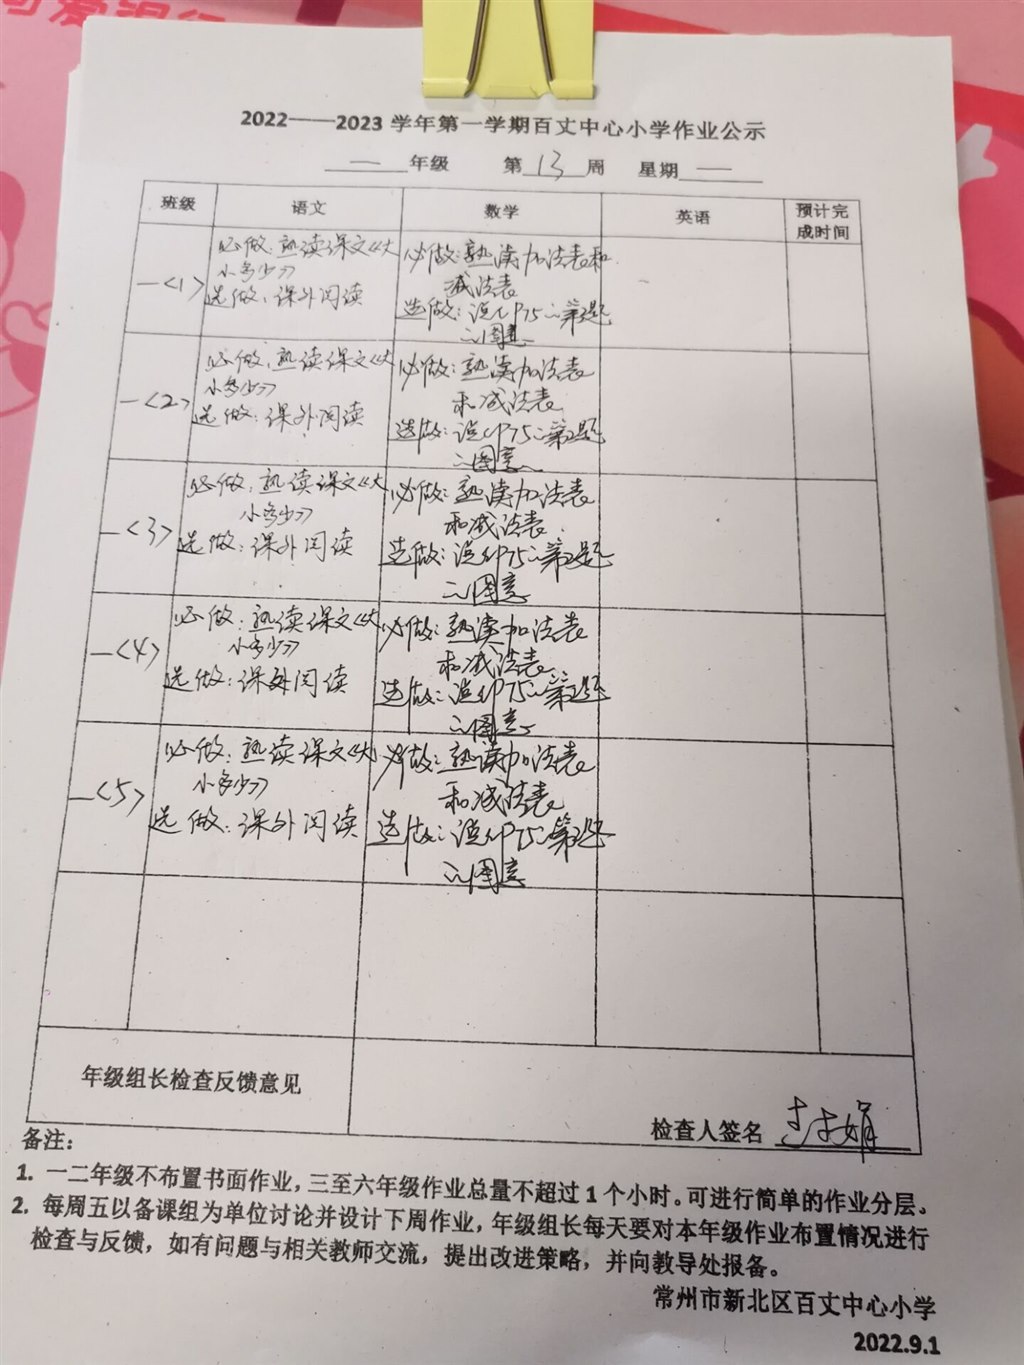 2022——2023 学年第一学期百丈中心小学作业公示
一 年级 第 13 周 星期 一
班级 语文 数学 英语 预计完成时间
一<1>
必做：熟读课文《大
小多少》
选做：课外阅读
必做：熟读加法表和
减法表
选做：说说P75第2题
图意
一<2>
必做：熟读课文《大
小多少》
选做：课外阅读
必做：熟读加法表
和减法表
选做：说说P75第2题
图意
一<3>
必做：熟读课文《大
小多少》
选做：课外阅读
必做：熟读加法表
和减法表
选做：说说P75第2题
图意
一<4>
必做：熟读课文《大
小多少》
选做：课外阅读
必做：熟读加法表
和减法表
选做：说说P75第2题
图意
一<5>
必做：熟读课文《大
小多少》
选做：课外阅读
必做：熟读加法表
和减法表
选做：说说P75第2题
图意
年级组长检查反馈意见
检查人签名
备注：
1. 一二年级不布置书面作业，三至六年级作业总量不超过 1 个小时。可进行简单的作业分层。
2. 每周五以备课组为单位讨论并设计下周作业，年级组长每天要对本年级作业布置情况进行
检查与反馈，如有问题与相关教师交流，提出改进策略，并向教导处报备。
常州市新北区百丈中心小学
2022.9.1